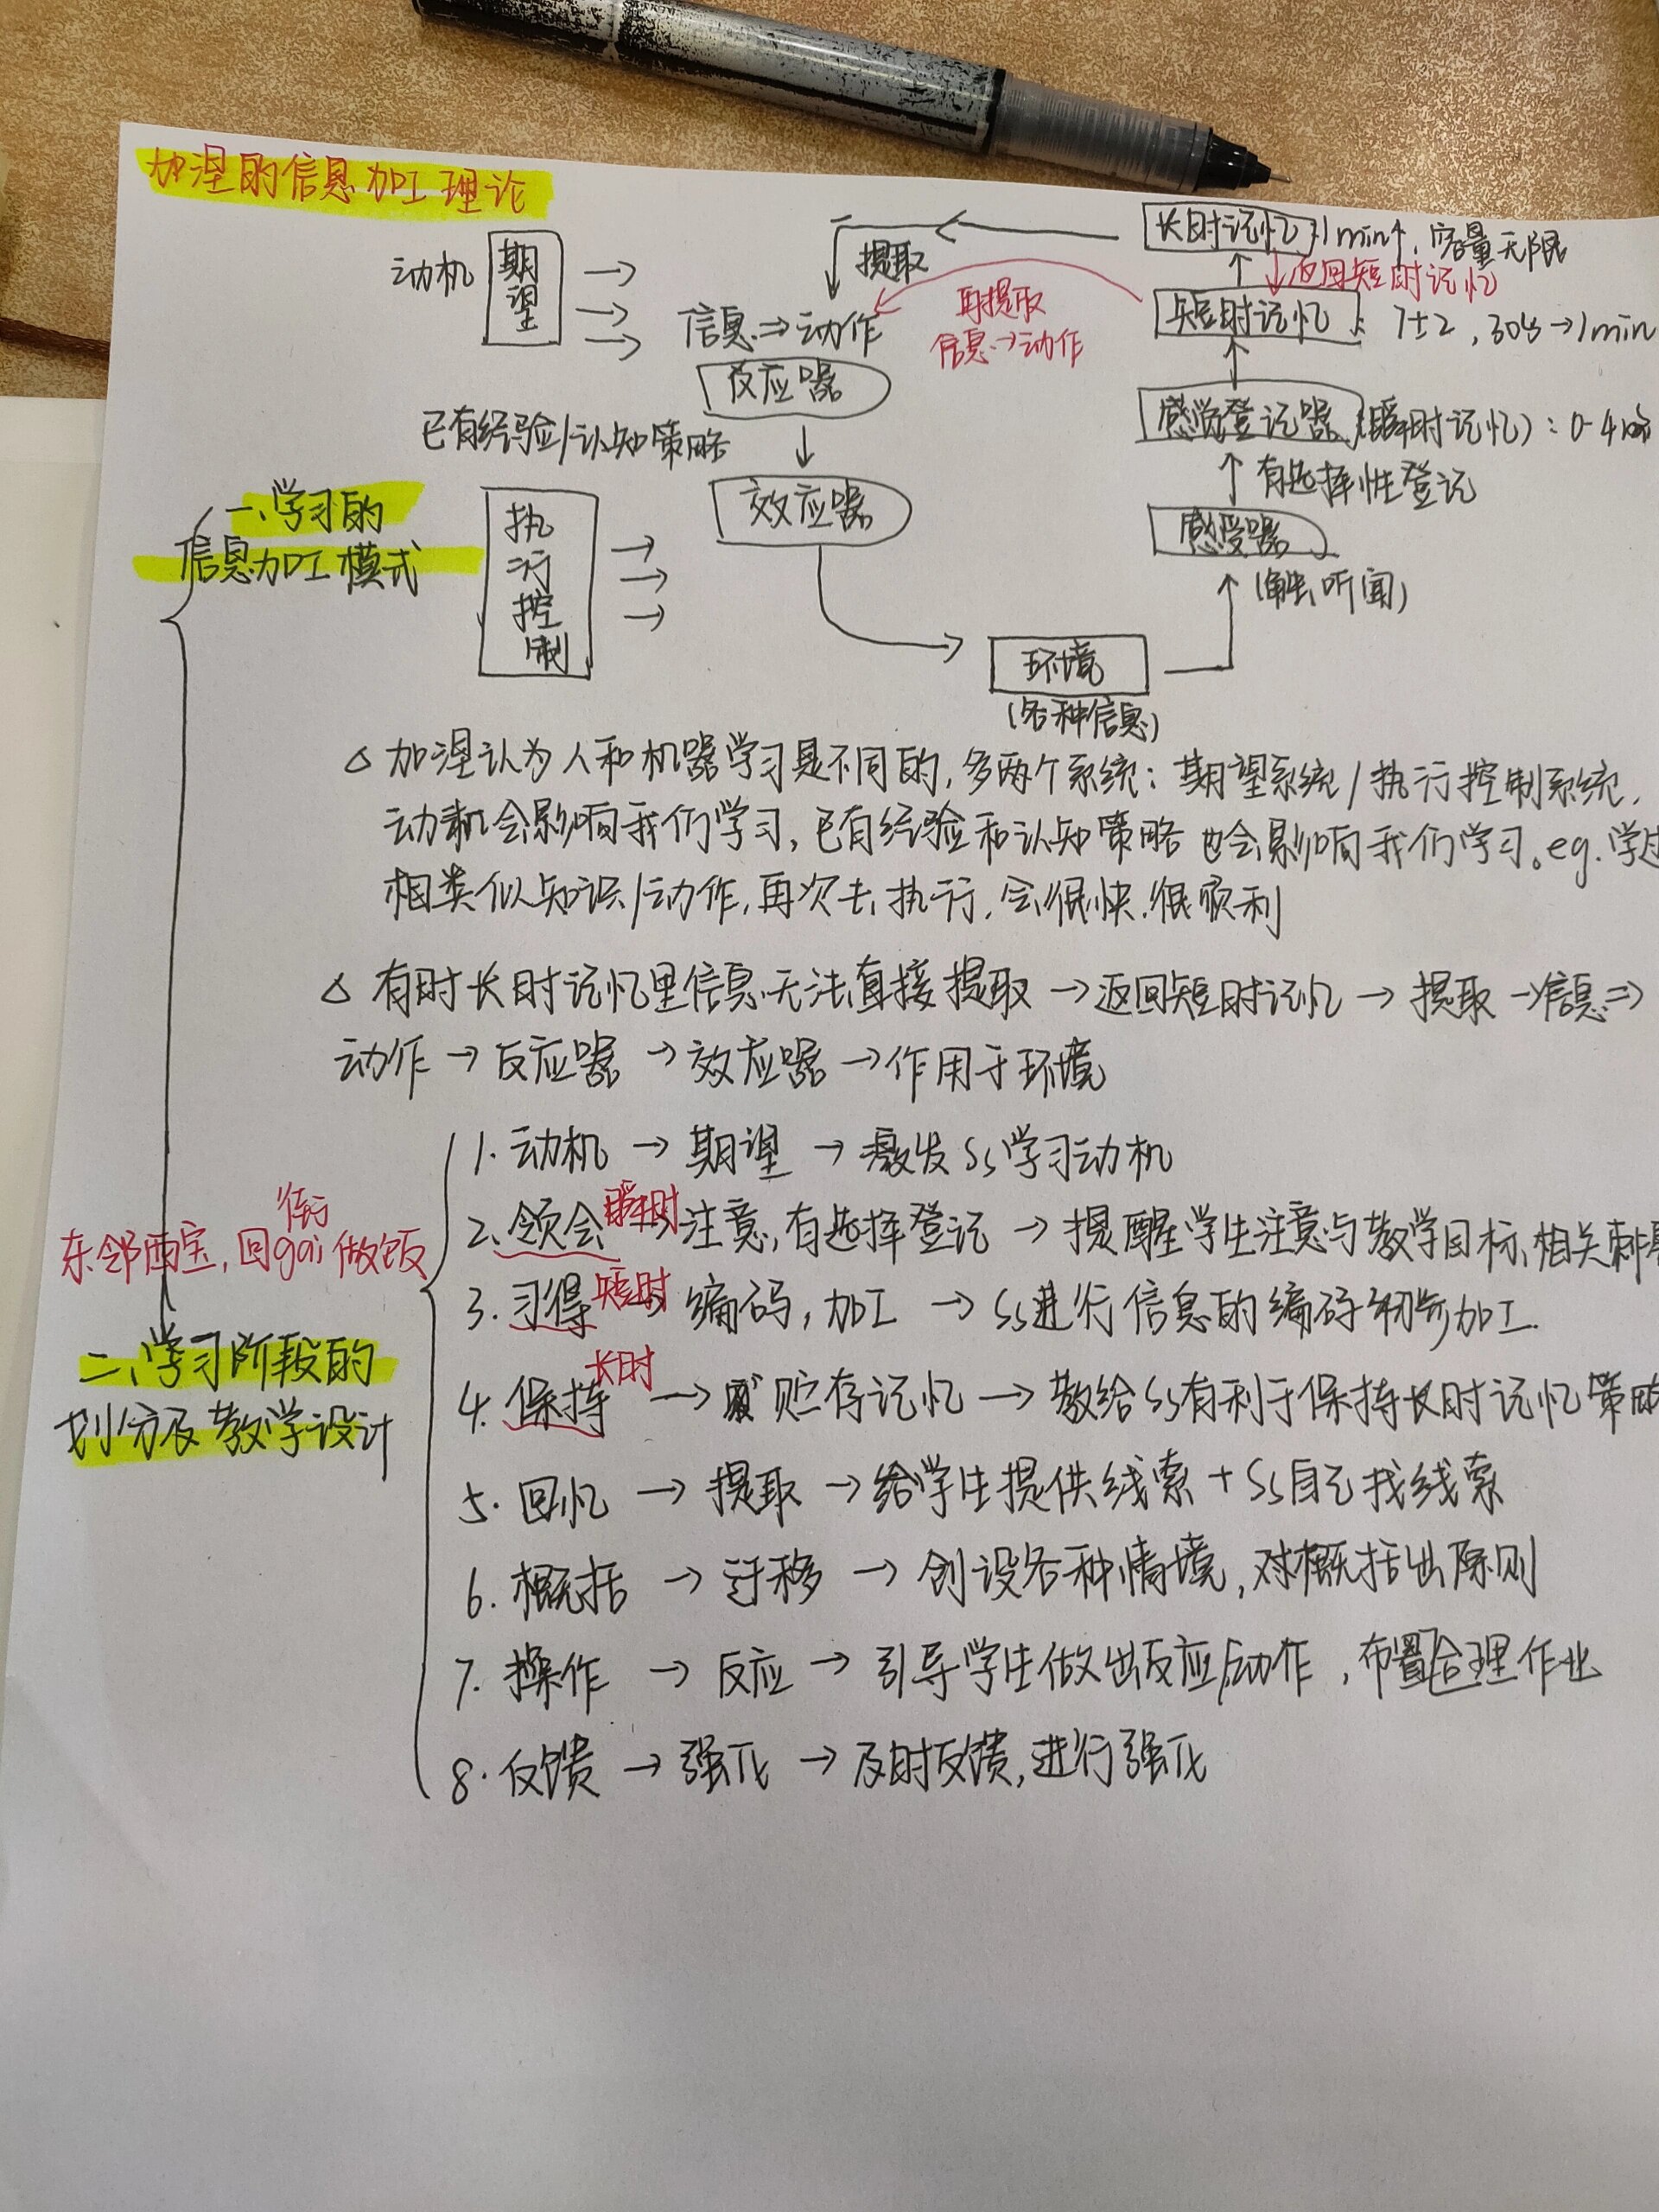 加涅的信息加工理论
长时记忆 1min↑, 容量无限
提取
↓返回短时记忆
动机 期望 → → →
再提取
信息→动作
短时记忆: 7±2, 30s→1min
信息⇒动作
反应器
感觉登记器 (瞬时记忆):
已有经验/认知策略
有选择性登记
一、学习的
信息加工模式
执行控制 → → →
效应器
感受器
环境
(各种信息)
△ 加涅认为人和机器学习是不同的, 多两个系统: 期望系统/执行控制系统,
动机会影响我们学习, 已有经验和认知策略也会影响我们学习。eg. 学过
相类似知识/动作, 再次去执行, 会很快, 很顺利
△ 有时长时记忆里信息无法直接提取→返回短时记忆→提取→信息⇒
动作→反应器→效应器→作用于环境
街
东邻西宝, 回gai做饭
二、学习阶段的
划分及教学设计
1. 动机→期望→激发Ss学习动机
2. 领会 瞬时 → 注意, 有选择登记→提醒学生注意与教学目标相关刺
3. 习得 短时 → 编码, 加工→Ss进行信息的编码初步加工.
4. 保持 长时 → 贮存记忆→教给Ss有利于保持长时记忆策略
5. 回忆→提取→给学生提供线索+Ss自己找线索
6. 概括→迁移→创设各种情境, 对概括出原则
7. 操作→反应→引导学生做出反应动作, 布置合理作业
8. 反馈→强化→及时反馈, 进行强化